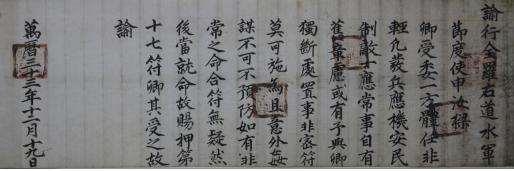 諭行全羅右道水軍
節度使申汝櫟
卿受委一方體任非
輕凡發兵應機安民
制敵一應常事自有
舊章慮或有予與卿
獨斷處置事非密符
莫可施爲且意外姦
謀不可不預防如有非
常之命合符無疑然
後當就命故賜押第
十七符卿其受之故
諭
萬曆三十三年十二月十九日